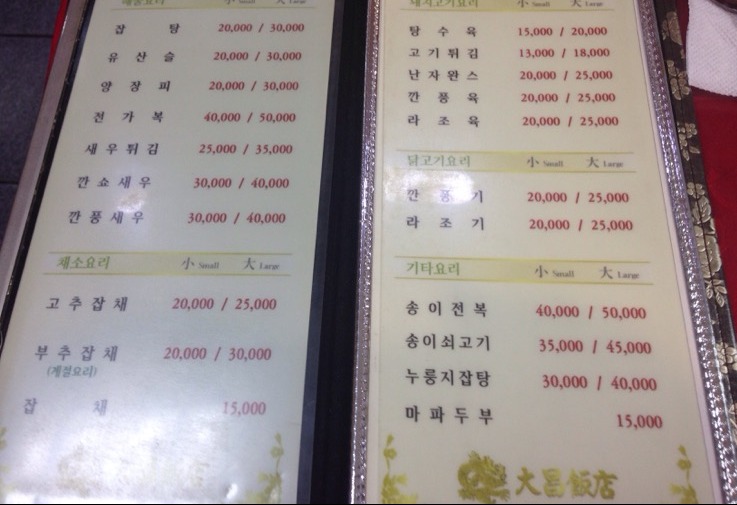 해물요리 小 Small 大 Large
잡 탕 20,000 / 30,000
유 산 슬 20,000 / 30,000
양 장 피 20,000 / 30,000
전 가 복 40,000 / 50,000
새 우 튀 김 25,000 / 35,000
깐 쇼 새 우 30,000 / 40,000
깐 풍 새 우 30,000 / 40,000
채소요리 小 Small 大 Large
고 추 잡 채 20,000 / 25,000
부 추 잡 채 20,000 / 30,000
(계절요리)
잡 채 15,000
돼지고기요리 小 Small 大 Large
탕 수 육 15,000 / 20,000
고 기 튀 김 13,000 / 18,000
난 자 완 스 20,000 / 25,000
깐 풍 육 20,000 / 25,000
라 조 육 20,000 / 25,000
닭고기요리 小 Small 大 Large
깐 풍 기 20,000 / 25,000
라 조 기 20,000 / 25,000
기타요리 小 Small 大 Large
송 이 전 복 40,000 / 50,000
송이쇠고기 35,000 / 45,000
누룽지잡탕 30,000 / 40,000
마 파 두 부 15,000
大昌飯店